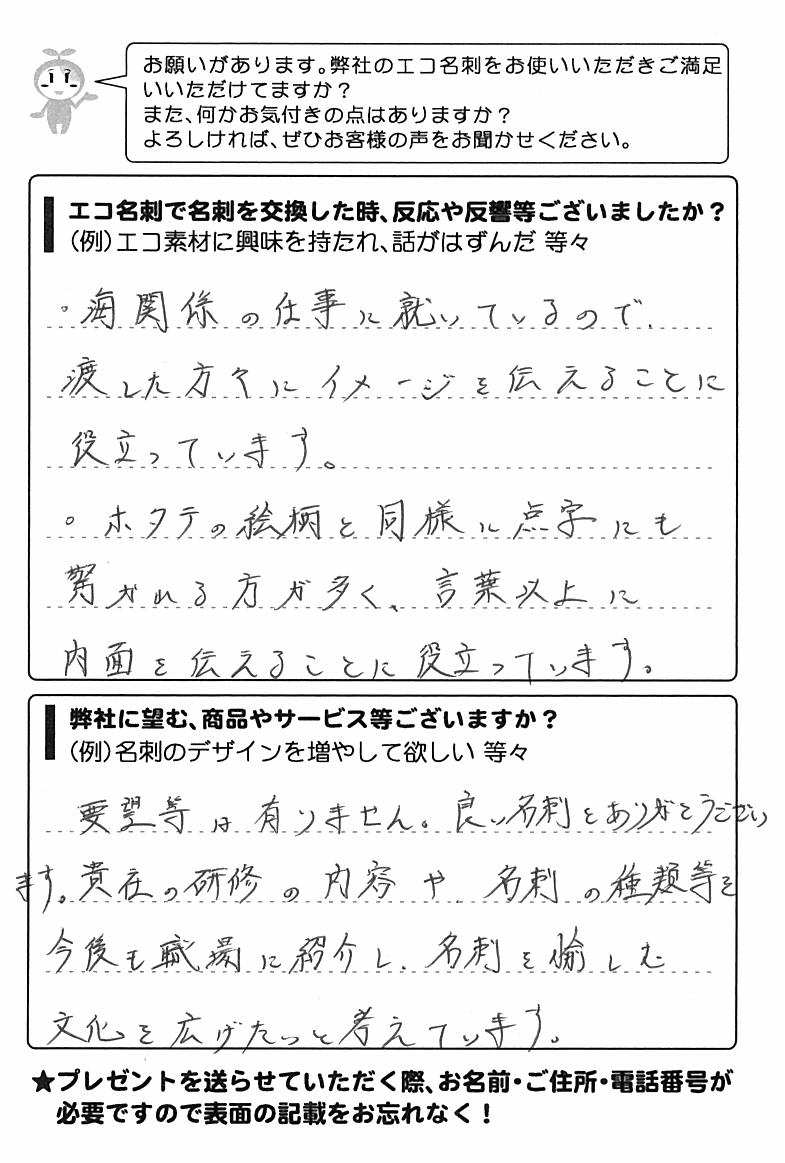 お願いがあります。弊社のエコ名刺をお使いいただきご満足
いいただけてますか？
また、何かお気付きの点はありますか？
よろしければ、ぜひお客様の声をお聞かせください。
エコ名刺で名刺を交換した時、反応や反響等ございましたか？
（例）エコ素材に興味を持たれ、話がはずんだ 等々
・海関係の仕事に就いているので、
渡した方々にイメージを伝えることに
役立っています。
・ホタテの絵柄と同様に点字にも
驚かれる方が多く、言葉以上に
内面を伝えることに役立っています。
弊社に望む、商品やサービス等ございますか？
（例）名刺のデザインを増やして欲しい 等々
要望等は有りません。良い名刺をありがとうござい
ます。貴社の研修の内容や、名刺の種類等を
今後も職場に紹介し、名刺を愉しむ
文化を広げたいと考えています。
★プレゼントを送らせていただく際、お名前・ご住所・電話番号が
必要ですので表面の記載をお忘れなく！